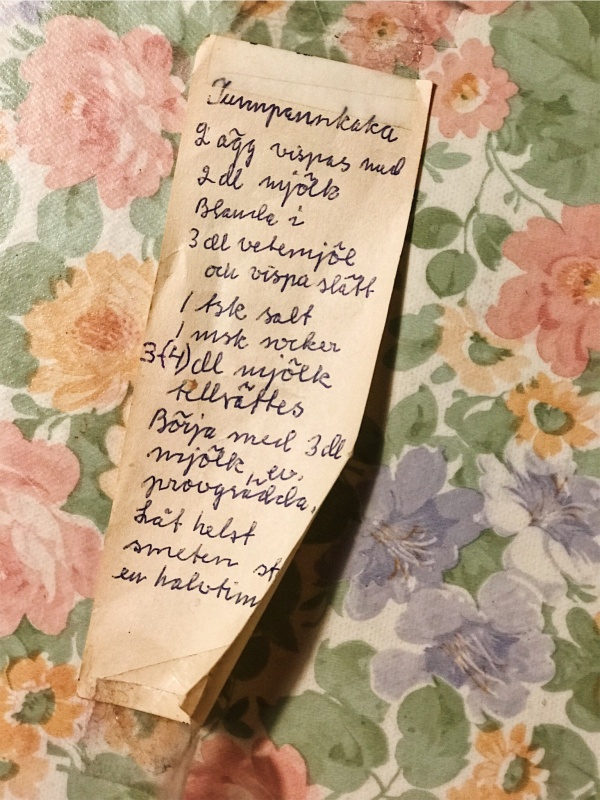 Tunnpannkaka
2 ägg vispas med
2 dl mjölk
Blanda i
3 dl vetemjöl
och vispa slätt
1 tsk salt
1 msk socker
3-(4) dl mjölk
tillsättes
Börja med 3 dl
mjölk, ev.
provgrädda.
Låt helst
smeten st
en halvtim